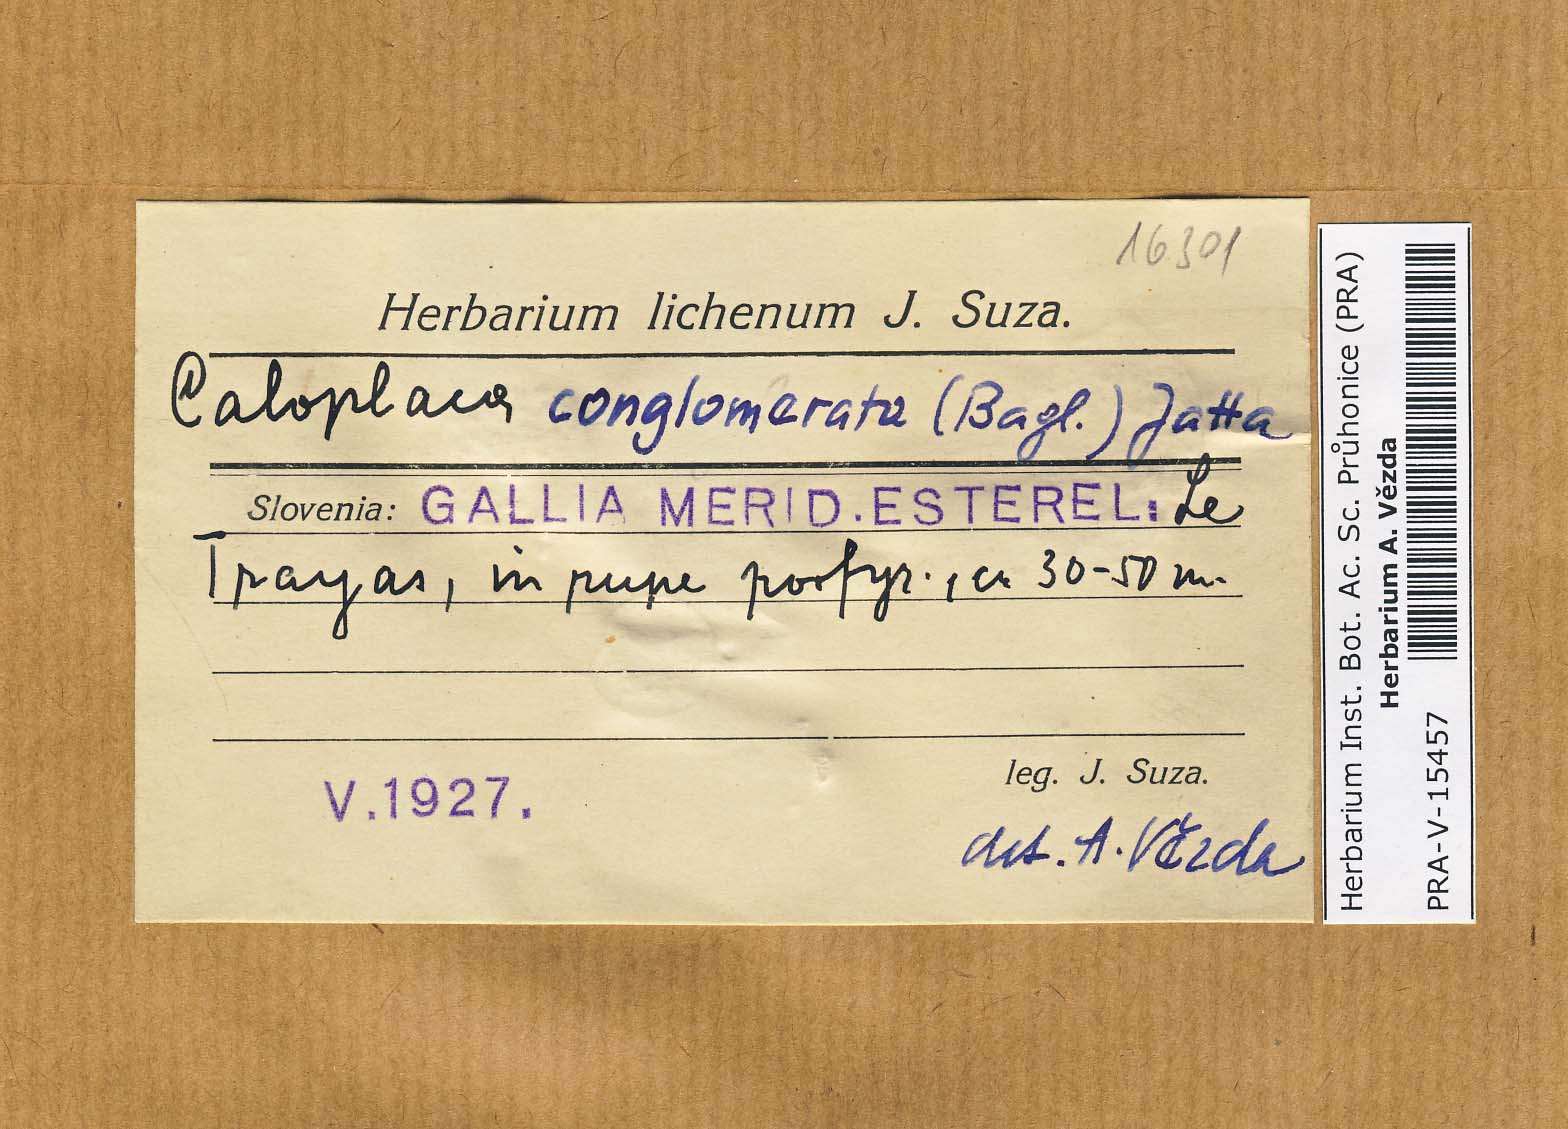 16301
Herbarium lichenum J. Suza.
Caloplaca conglomerata (Bagl.) Jatta
Slovenia: GALLIA MERID. ESTEREL: Le
Trayas, in rupe porfyr., ca 30-50 m.
V. 1927.
leg. J. Suza.
det. A. Vězda
Herbarium Inst. Bot. Ac. Sc. Průhonice (PRA)
Herbarium A. Vězda
PRA-V-15457